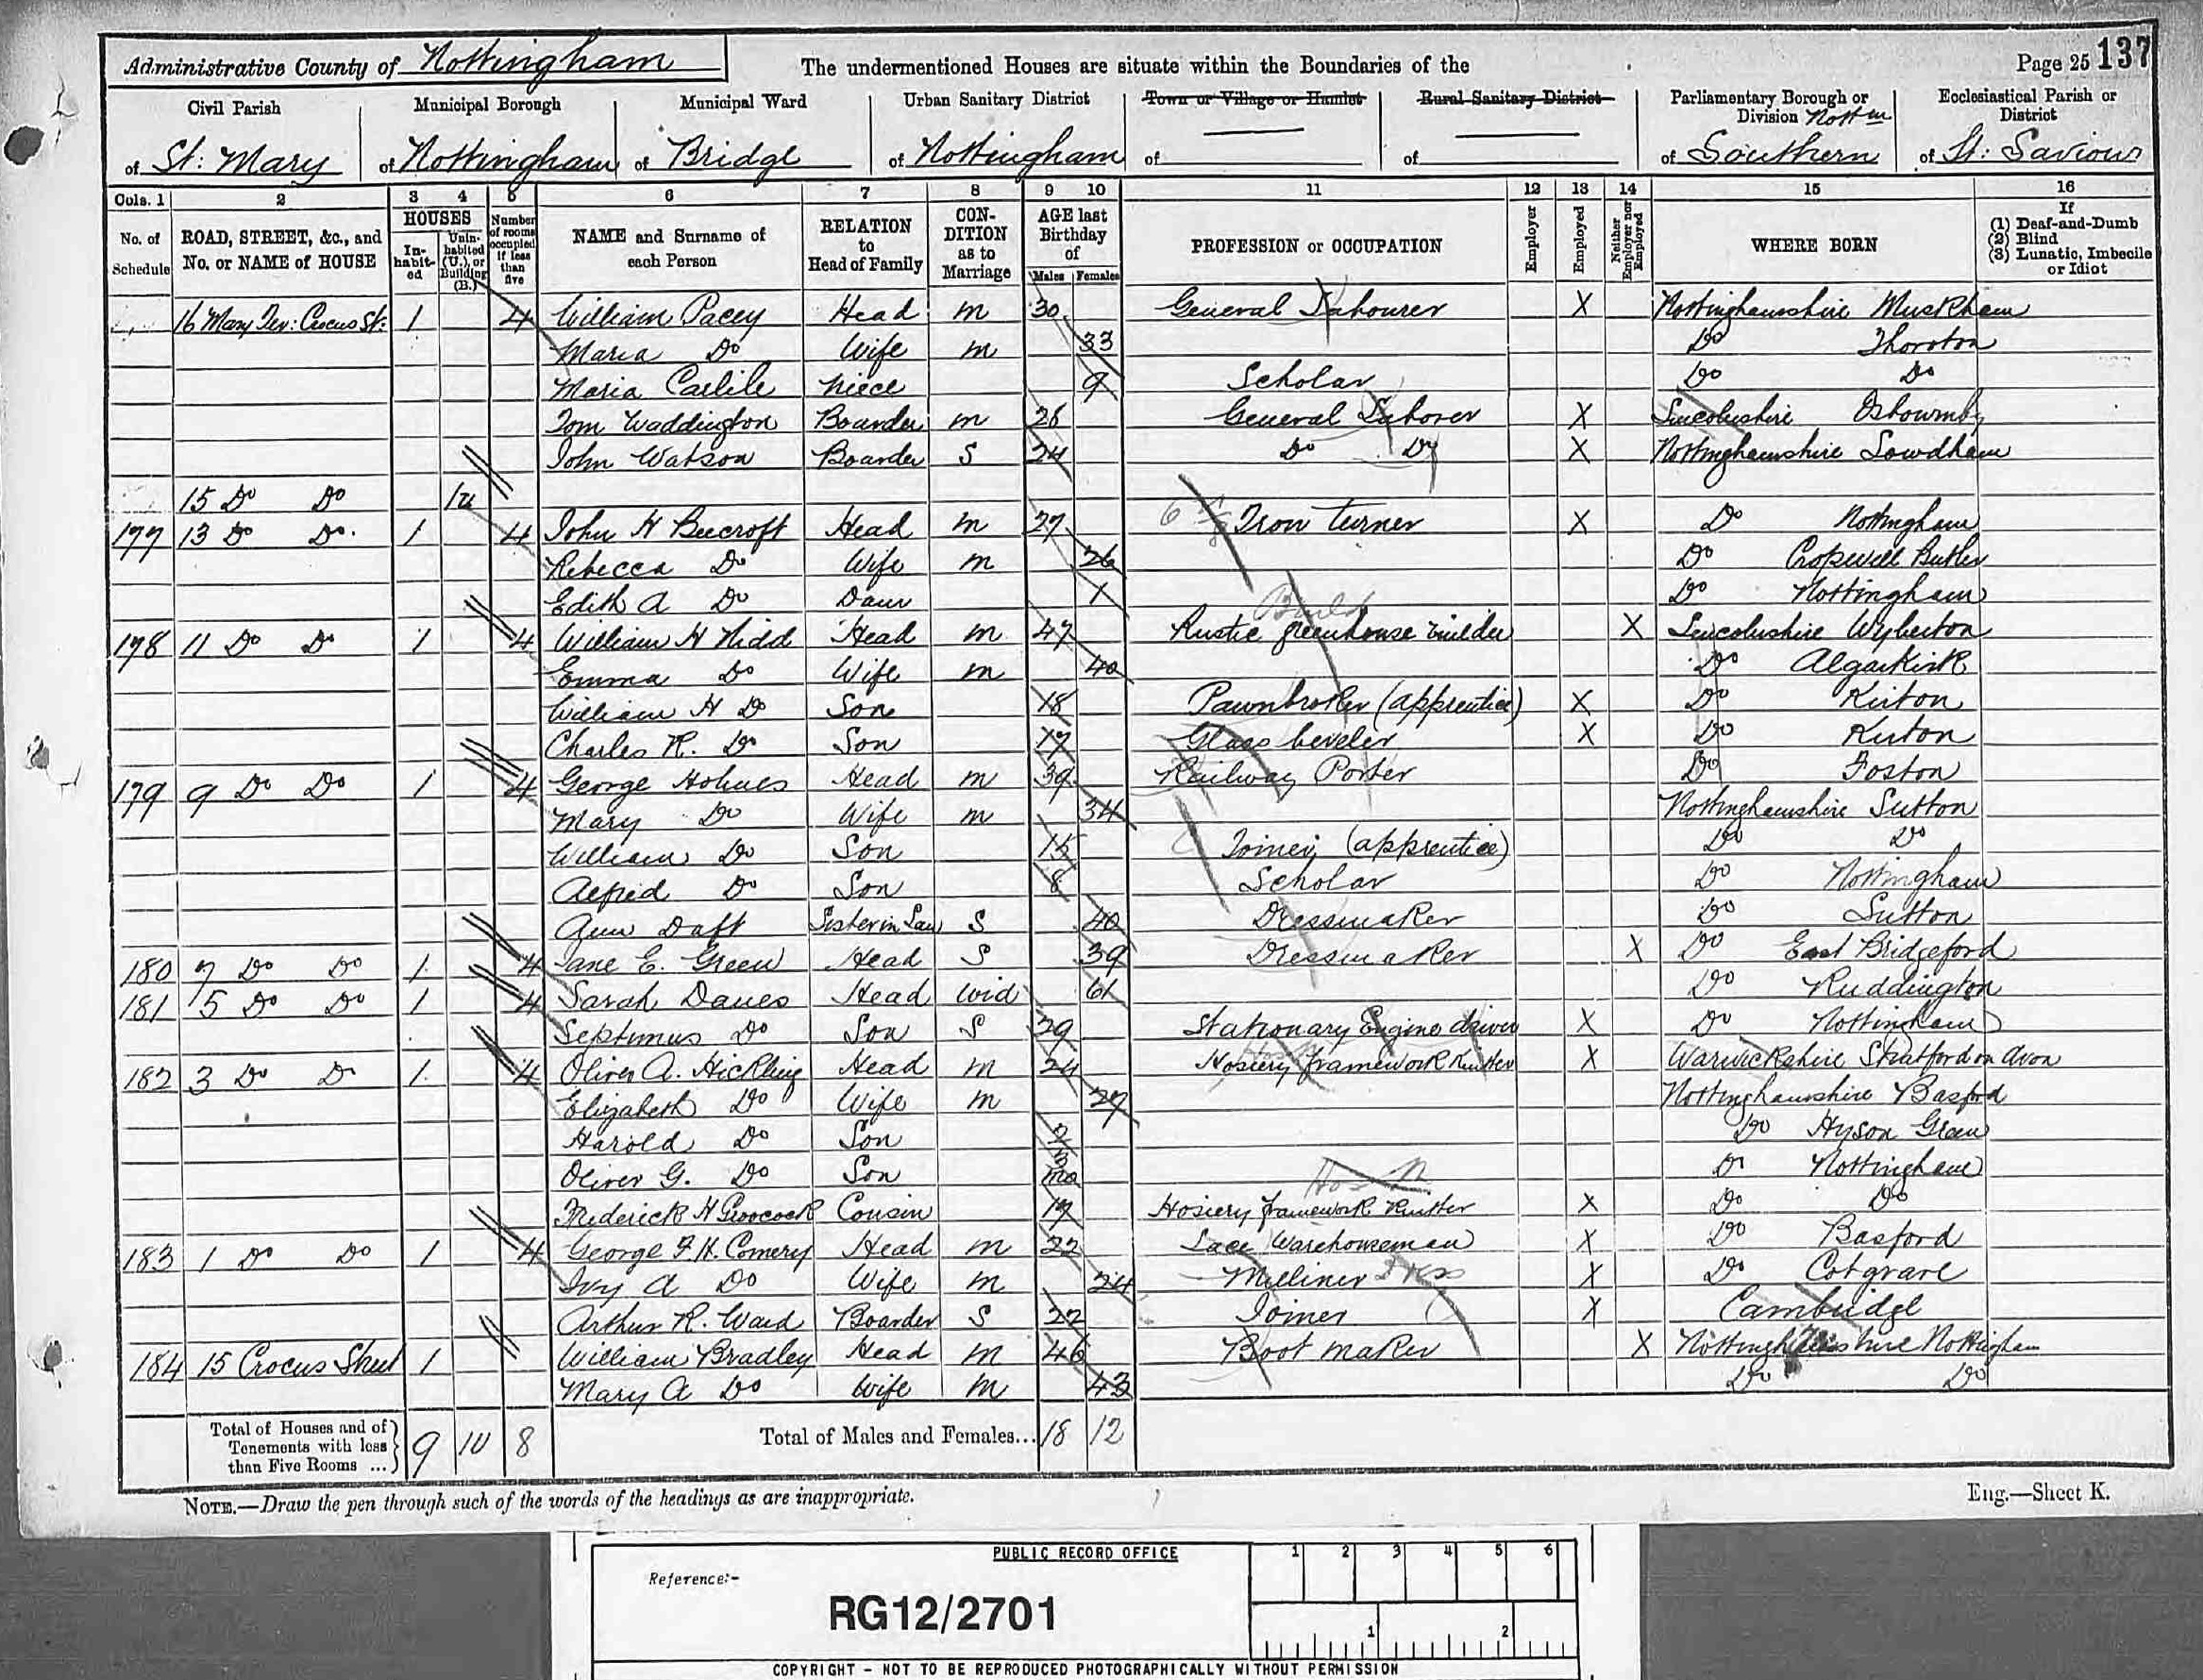 Administrative County of Nottingham
The undermentioned Houses are situate within the Boundaries of the
Page 25 137
Civil Parish of St: Mary
Municipal Borough of Nottingham
Municipal Ward of Bridge
Urban Sanitary District of Nottingham
Town or Village or Hamlet of
Rural Sanitary District of
Parliamentary Borough or Division Nottm of Southern
Ecclesiastical Parish or District of St: Saviour
Cols. 1 2 3 4 5 6 7 8 9 10 11 12 13 14 15 16
No. of Schedule
ROAD, STREET, &c., and No. or NAME of HOUSE
HOUSES
In-habit-ed
Unin-habited (U.), or Building (B.)
Number of rooms occupied if less than five
NAME and Surname of each Person
RELATION to Head of Family
CON-DITION as to Marriage
AGE last Birthday of
Males Females
PROFESSION or OCCUPATION
Employer
Employed
Neither Employer nor Employed
WHERE BORN
If
(1) Deaf-and-Dumb
(2) Blind
(3) Lunatic, Imbecile or Idiot
16 Mary Ter: Crocus St: 1 4 William Pacey Head M 30 General Labourer X Nottinghamshire Muskham
Maria Do Wife M 33 Do Thoroton
Maria Carlile Niece 9 Scholar Do Do
Tom Waddington Boarder M 26 General Laborer X Lincolnshire
John Watson Boarder S 24 Do Do X Nottinghamshire Lowdham
15 Do Do 1u
177 13 Do Do 1 4 John H Beecroft Head M 27 Iron turner X Do Nottingham
Rebecca Do Wife M 26 Do Cropwell Butler
Edith A Do Daur 1 Do Nottingham
178 11 Do Do 1 4 William H Kidd Head M 47 Rustic greenhouse builder X Lincolnshire Wyberton
Emma Do Wife M 40 Do Algarkirk
William H Do Son 18 Pawnbroker (apprentice) X Do Kirton
Charles R. Do Son 17 Glass beveler X Do Kirton
179 9 Do Do 1 4 George Holmes Head M 39 Railway Porter Do Foston
Mary Do Wife M 34 Nottinghamshire Sutton
William Do Son 15 Joiner (apprentice) Do Do
Alfred Do Son 8 Scholar Do Nottingham
Ann Daft Sister in Law S 40 Dressmaker Do Sutton
180 7 Do Do 1 4 Jane E. Green Head S 39 Dressmaker X Do East Bridgeford
181 5 Do Do 1 4 Sarah Davies Head Wid 61 Do Ruddington
Septimus Do Son S 29 Stationary Engine driver X Do Nottingham
182 3 Do Do 1 4 Oliver A. Hickling Head M 24 Hosiery framework Knitter X Warwickshire Stratford on Avon
Elizabeth Do Wife M 27 Nottinghamshire Basford
Harold Do Son Do Hyson Green
Oliver G. Do Son mo Do Nottingham
Frederick H Groocock Cousin 17 Hosiery framework Knitter X Do Do
183 1 Do Do 1 4 George F. H. Comery Head M 22 Lace Warehouseman X Do Basford
Ivy A Do Wife M 24 Milliner X Do Cotgrave
Arthur R. Ward Boarder S 22 Joiner X Cambridge
184 15 Crocus Street 1 William Bradley Head M 46 Boot maker X Nottinghamshire Nottingham
Mary A Do Wife M 43 Do Do
Total of Houses and of Tenements with less than Five Rooms ... 9 1U 8
Total of Males and Females... 18 12
NOTE.—Draw the pen through such of the words of the headings as are inappropriate.
Eng.—Sheet K.
PUBLIC RECORD OFFICE
1 2 3 4 5 6
Reference:-
RG12/2701
1 2
COPYRIGHT - NOT TO BE REPRODUCED PHOTOGRAPHICALLY WITHOUT PERMISSION